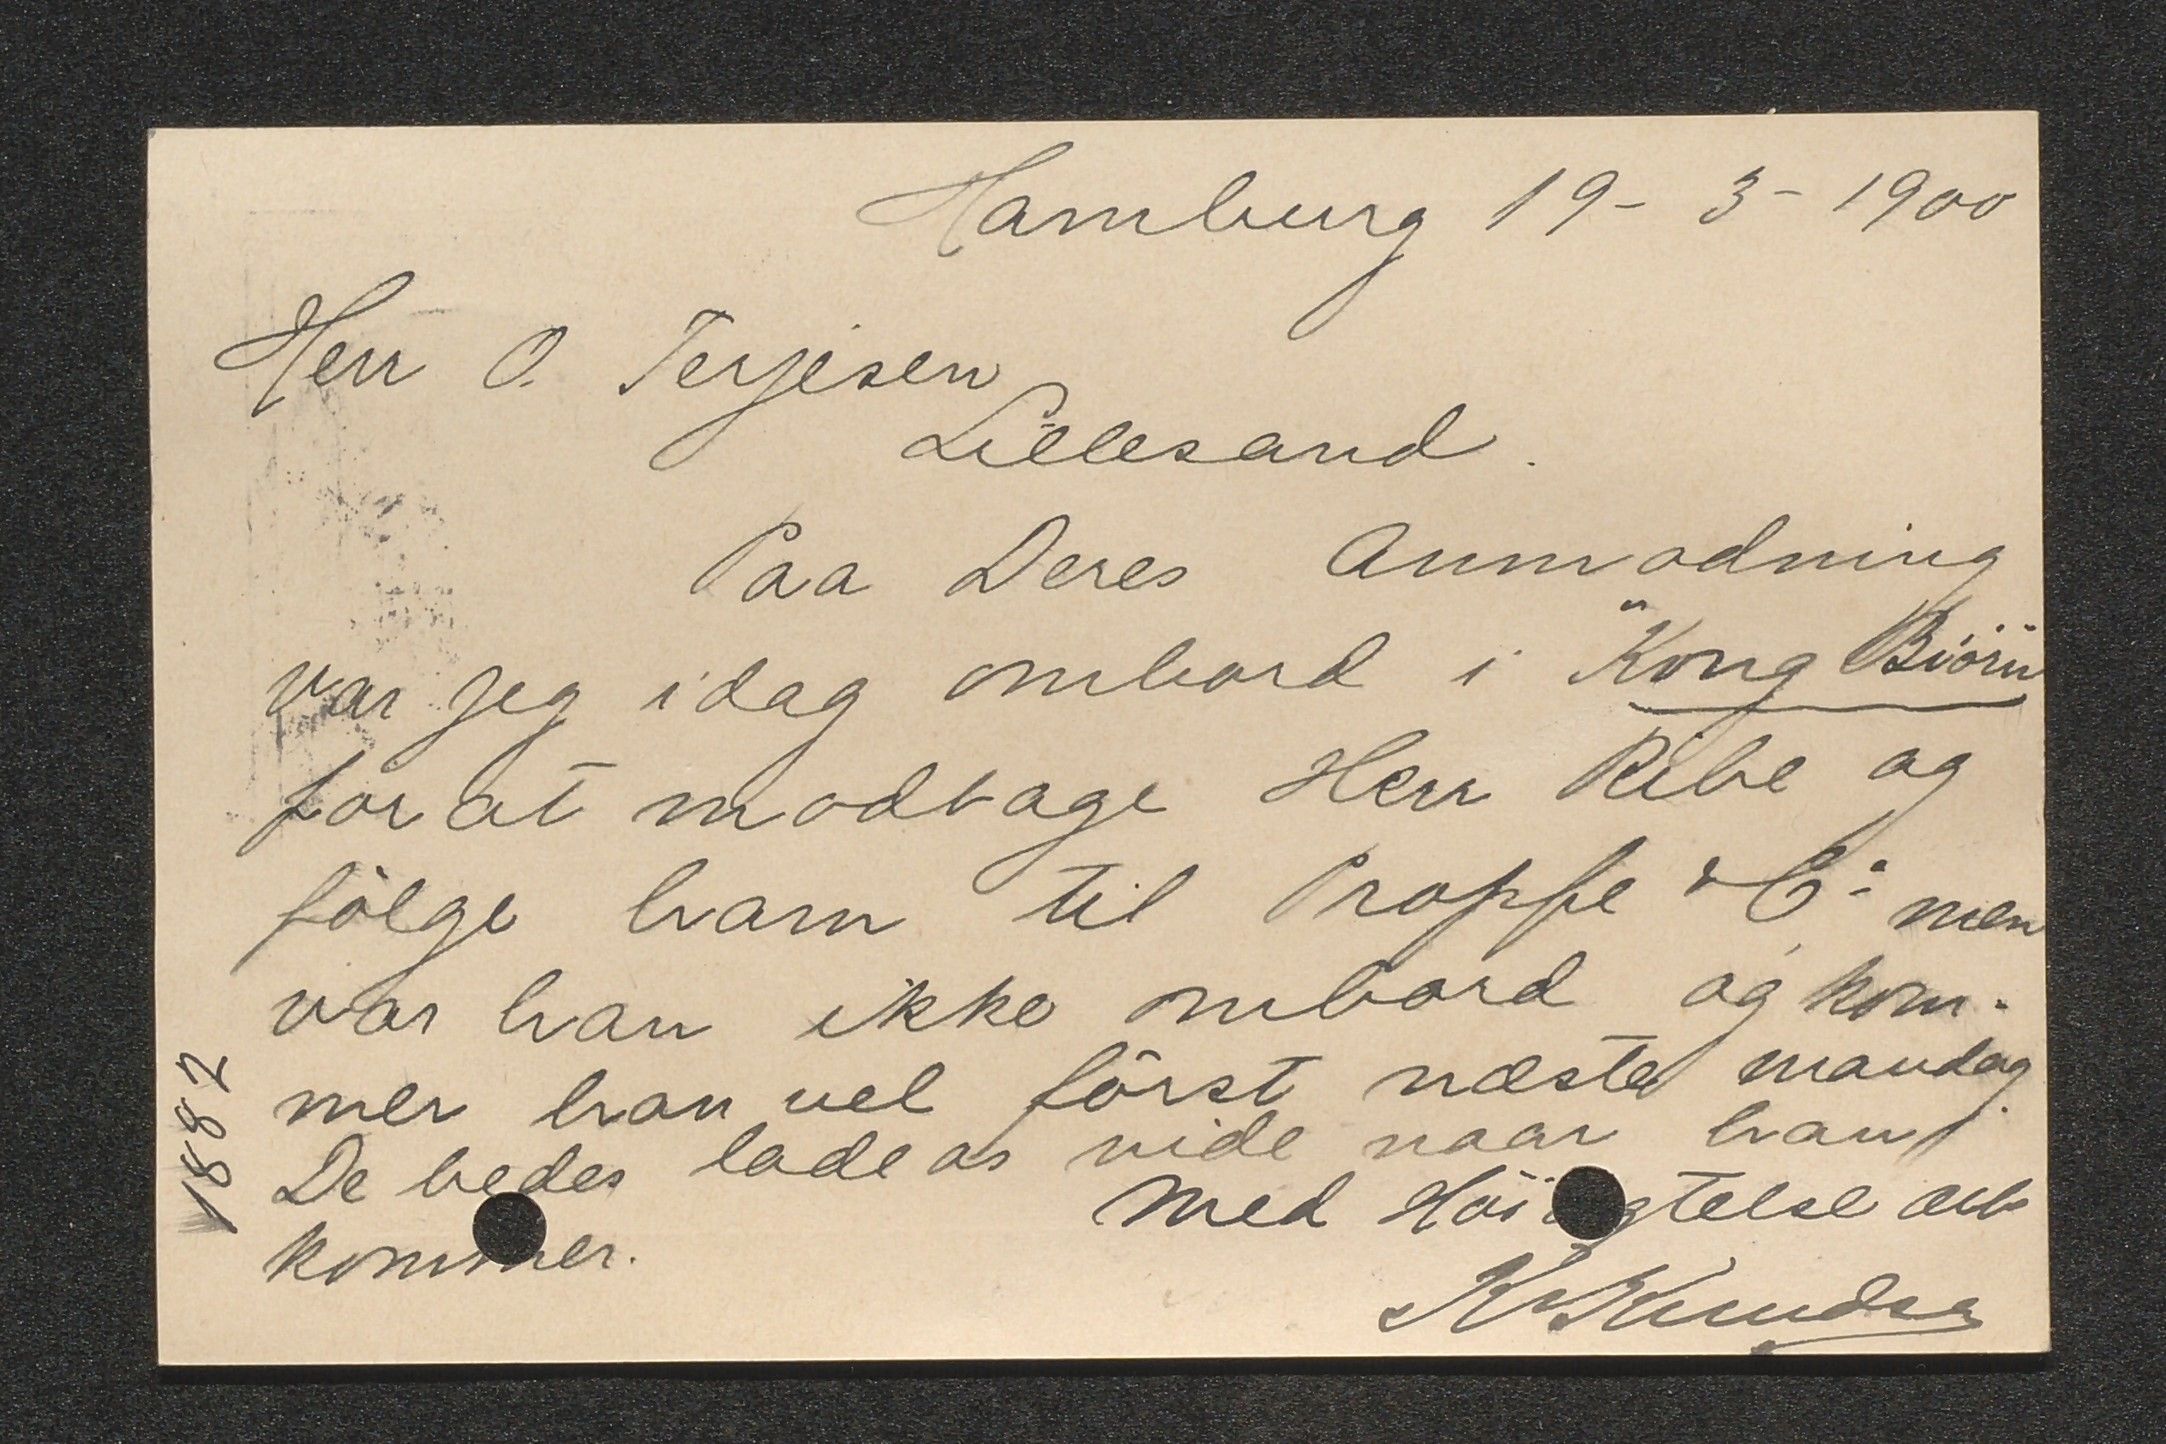 Hamburg 19 - 3 - 1900
Herr O. Terjesen
Lillesand.
Paa Deres Anmodning
var jeg idag ombord i "Kong Biörn"
for at modtage Herr Ribe og
fölge ham til Proppe & Co men
var han ikke ombord og kom-
mer han vel först næste mandag.
De bedes lade os vide naar han
kommer.
Med Höiagtelse erb
K Knudsen
1882